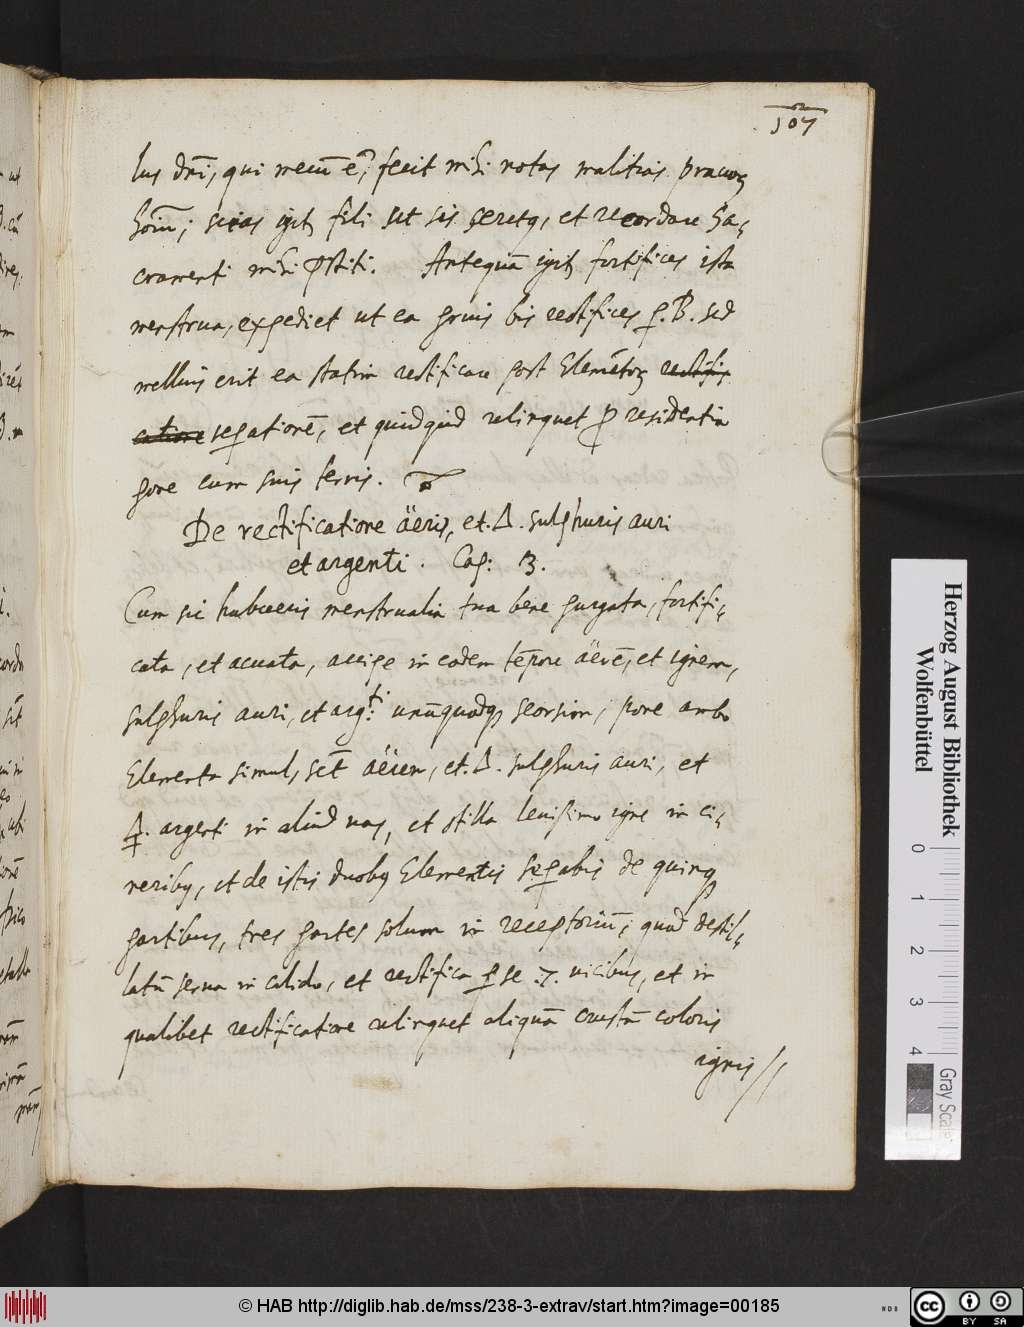 107
lus dn̄i, qui mecū ē, fecit mihi notas malitias pravoꝝ
hoīm; scias igit̄ fili ut sis secretꝯ, et recordare Sa-
cramenti mihi p̄stiti. Antequā igit̄ fortifices ista
menstrua, expediet ut ea prius bis rectifices p. B. sed
mellius erit ea statim rectificare post Elemētoꝝ rectifi-
catione sep̄ationē, et quidquid relinquet p̄ residentia
pone cum suis terris.
De rectificatione äeris, et .Δ. sulphuris auri
et argenti. Cap: 3.
Cum sic habueris menstrualia tua bene purgata, fortifi-
cata, et acuata, accipe in eodem tēpore äerē, et ignem,
sulphuris auri, et arg:ti unūquodqꝫ seorsim, pone ambo
Elementa simul, sct̄ äerem, et .Δ. sulphuris auri, et
argenti in aliud vas, et stilla levissimo igne in ci-
neribꝯ, et de istis duobꝯ Elementis sep̄abis de quinqꝫ
partibus, tres partes solum in receptoriū; quod destil-
latū serva in calido, et rectifica p̄ se .7. vicibus, et in
qualibet rectificatione relinquet aliquā crustā coloris
ignis
Herzog August Bibliothek
Wolfenbüttel
0 1 2 3 4
Gray Scale
© HAB http://diglib.hab.de/mss/238-3-extrav/start.htm?image=00185
cc BY SA